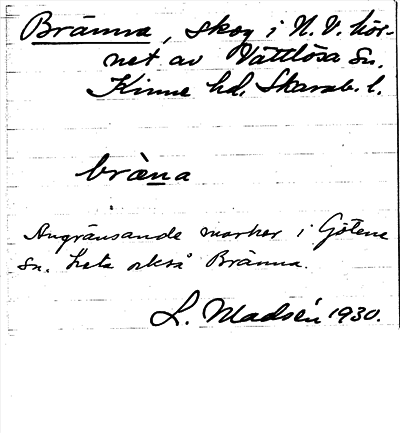 Bränna, skog i N.V. hör-
net av Vättlösa Sn.
Kinne hd. Skarab. l.
bräna
Angränsande marker i Götene
Sn. heta också Bränna.
L. Madsén 1930.